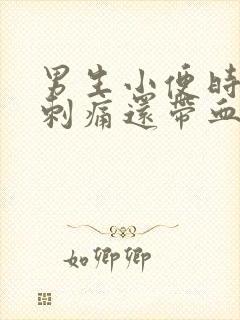 男生小便時
刺痛還帶血
如卿卿